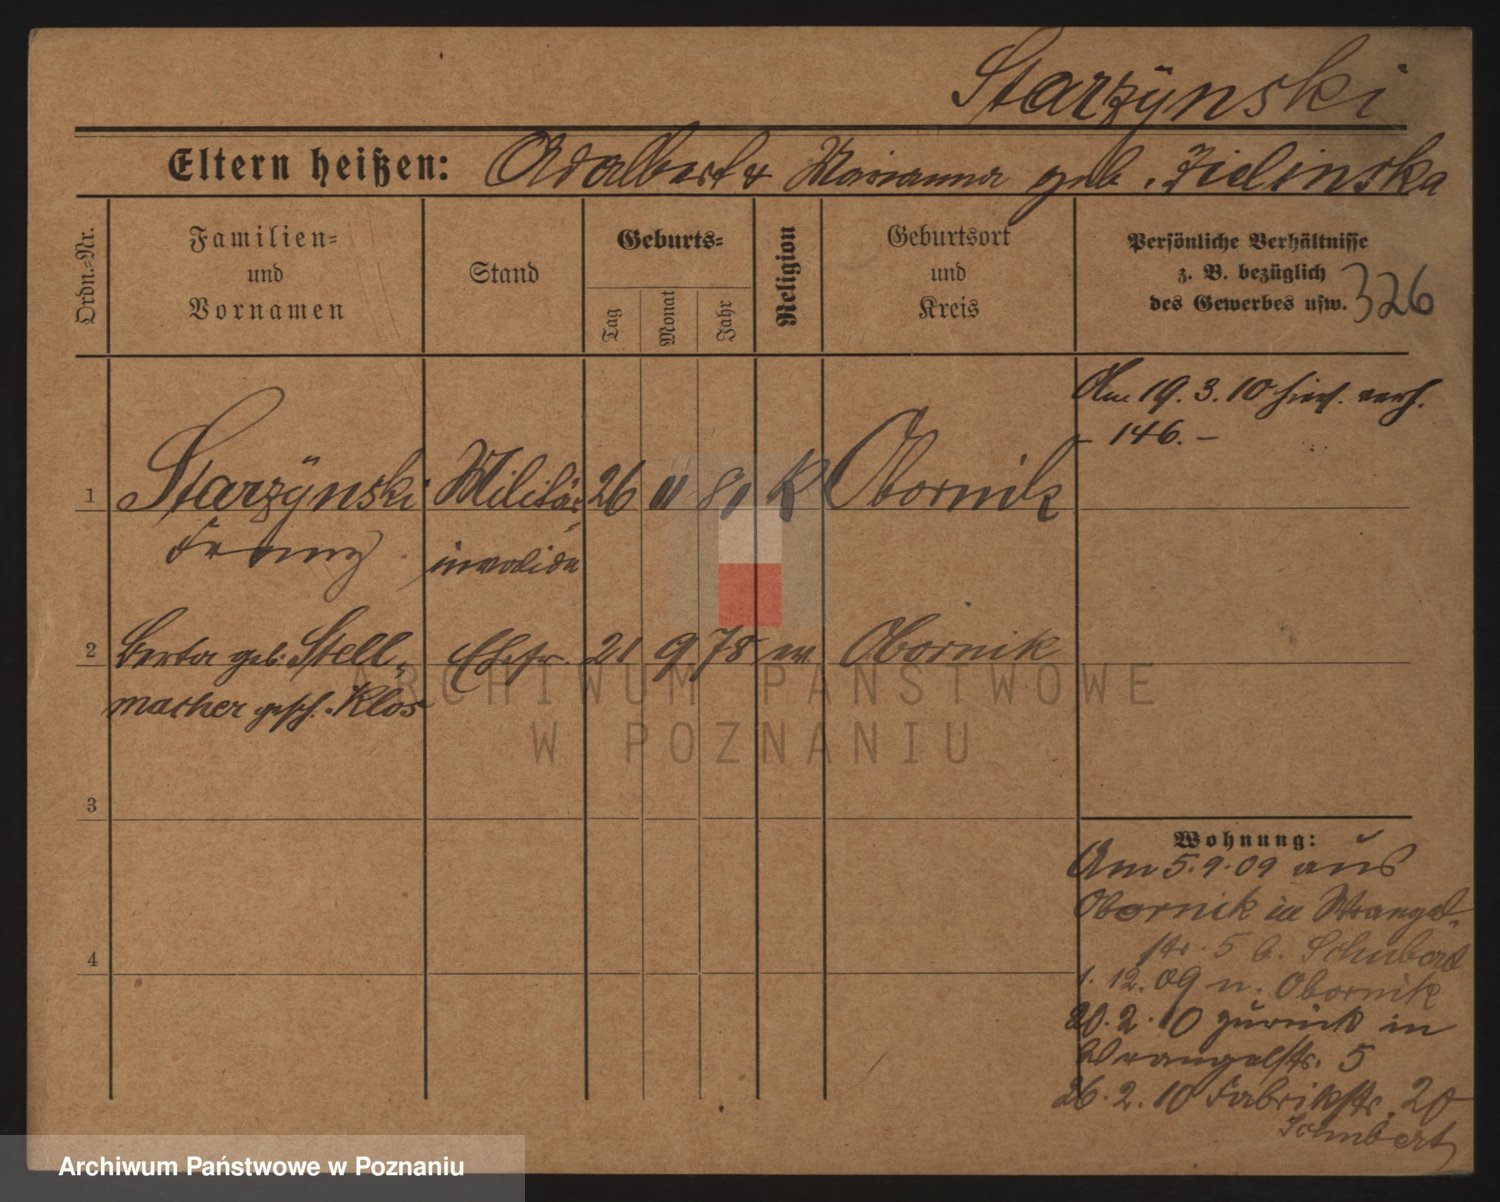 Starzÿnski
Eltern heißen: Adalbert & Marianna geb. Zielinska
Ordn.-Nr.
Familien-
und
Vornamen
Stand
Geburts-
Tag
Monat
Jahr
Religion
Geburtsort
und
Kreis
Persönliche Verhältnisse
z. B. bezüglich
des Gewerbes usw.
326
Am 19. 3. 10 hier verh.
- 146. -
1 Starzÿnski Militär- 26 11 81 K Obornik
Franz invalide
2 Berta geb. Stell- Ehefr. 21 9 78 ev. Obornik
macher gesch. Klos
3
4
Wohnung:
Am 5.9.09 aus
Obornik in Wrangel-
str. 5 b. Schubert
1. 12. 09 n. Obornik
20. 2. 10 zurück in
Wrangelstr. 5
26. 2. 10 Fabrikstr. 20
Schubert
ARCHIWUM PAŃSTWOWE
W POZNANIU
Archiwum Państwowe w Poznaniu